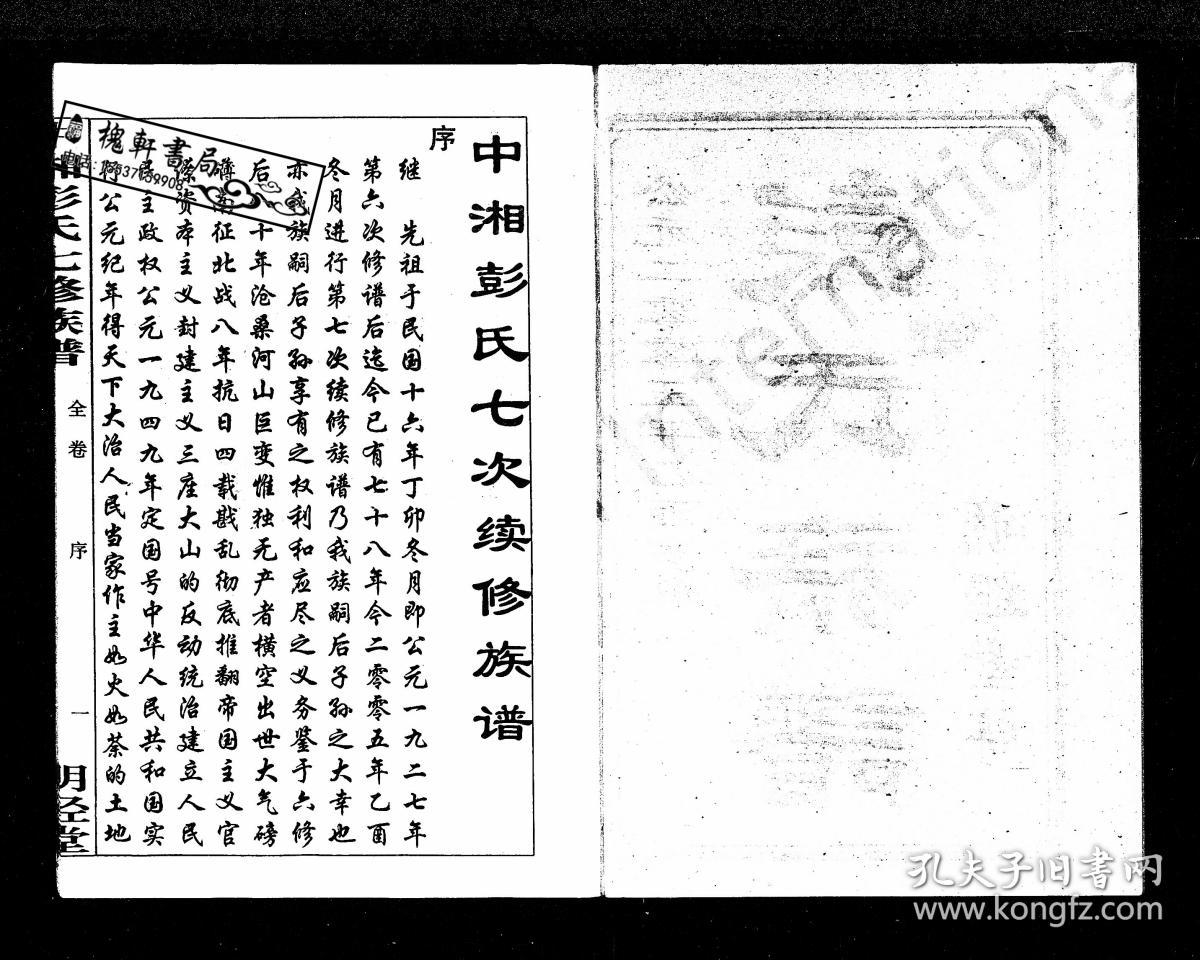 中湘彭氏七次续修族谱
序
继 先祖于民国十六年丁卯冬月即公元一九二七年
第六次修谱后迄今已有七十八年今二零零五年乙酉
冬月进行第七次续修族谱乃我族嗣后子孙之大幸也
亦我族嗣后子孙享有之权利和应尽之义务鉴于六修
后 十年沧桑河山巨变惟独无产者横空出世大气磅
礴南征北战八年抗日四载戡乱彻底推翻帝国主义官
僚资本主义封建主义三座大山的反动统治建立人民
民主政权公元一九四九年定国号中华人民共和国实
行公元纪年得天下大治人民当家作主如火如荼的土地
湘彭氏七修族谱
全卷
序
一
明经堂
槐軒書局
电话:
孔夫子旧书网
www.kongfz.com